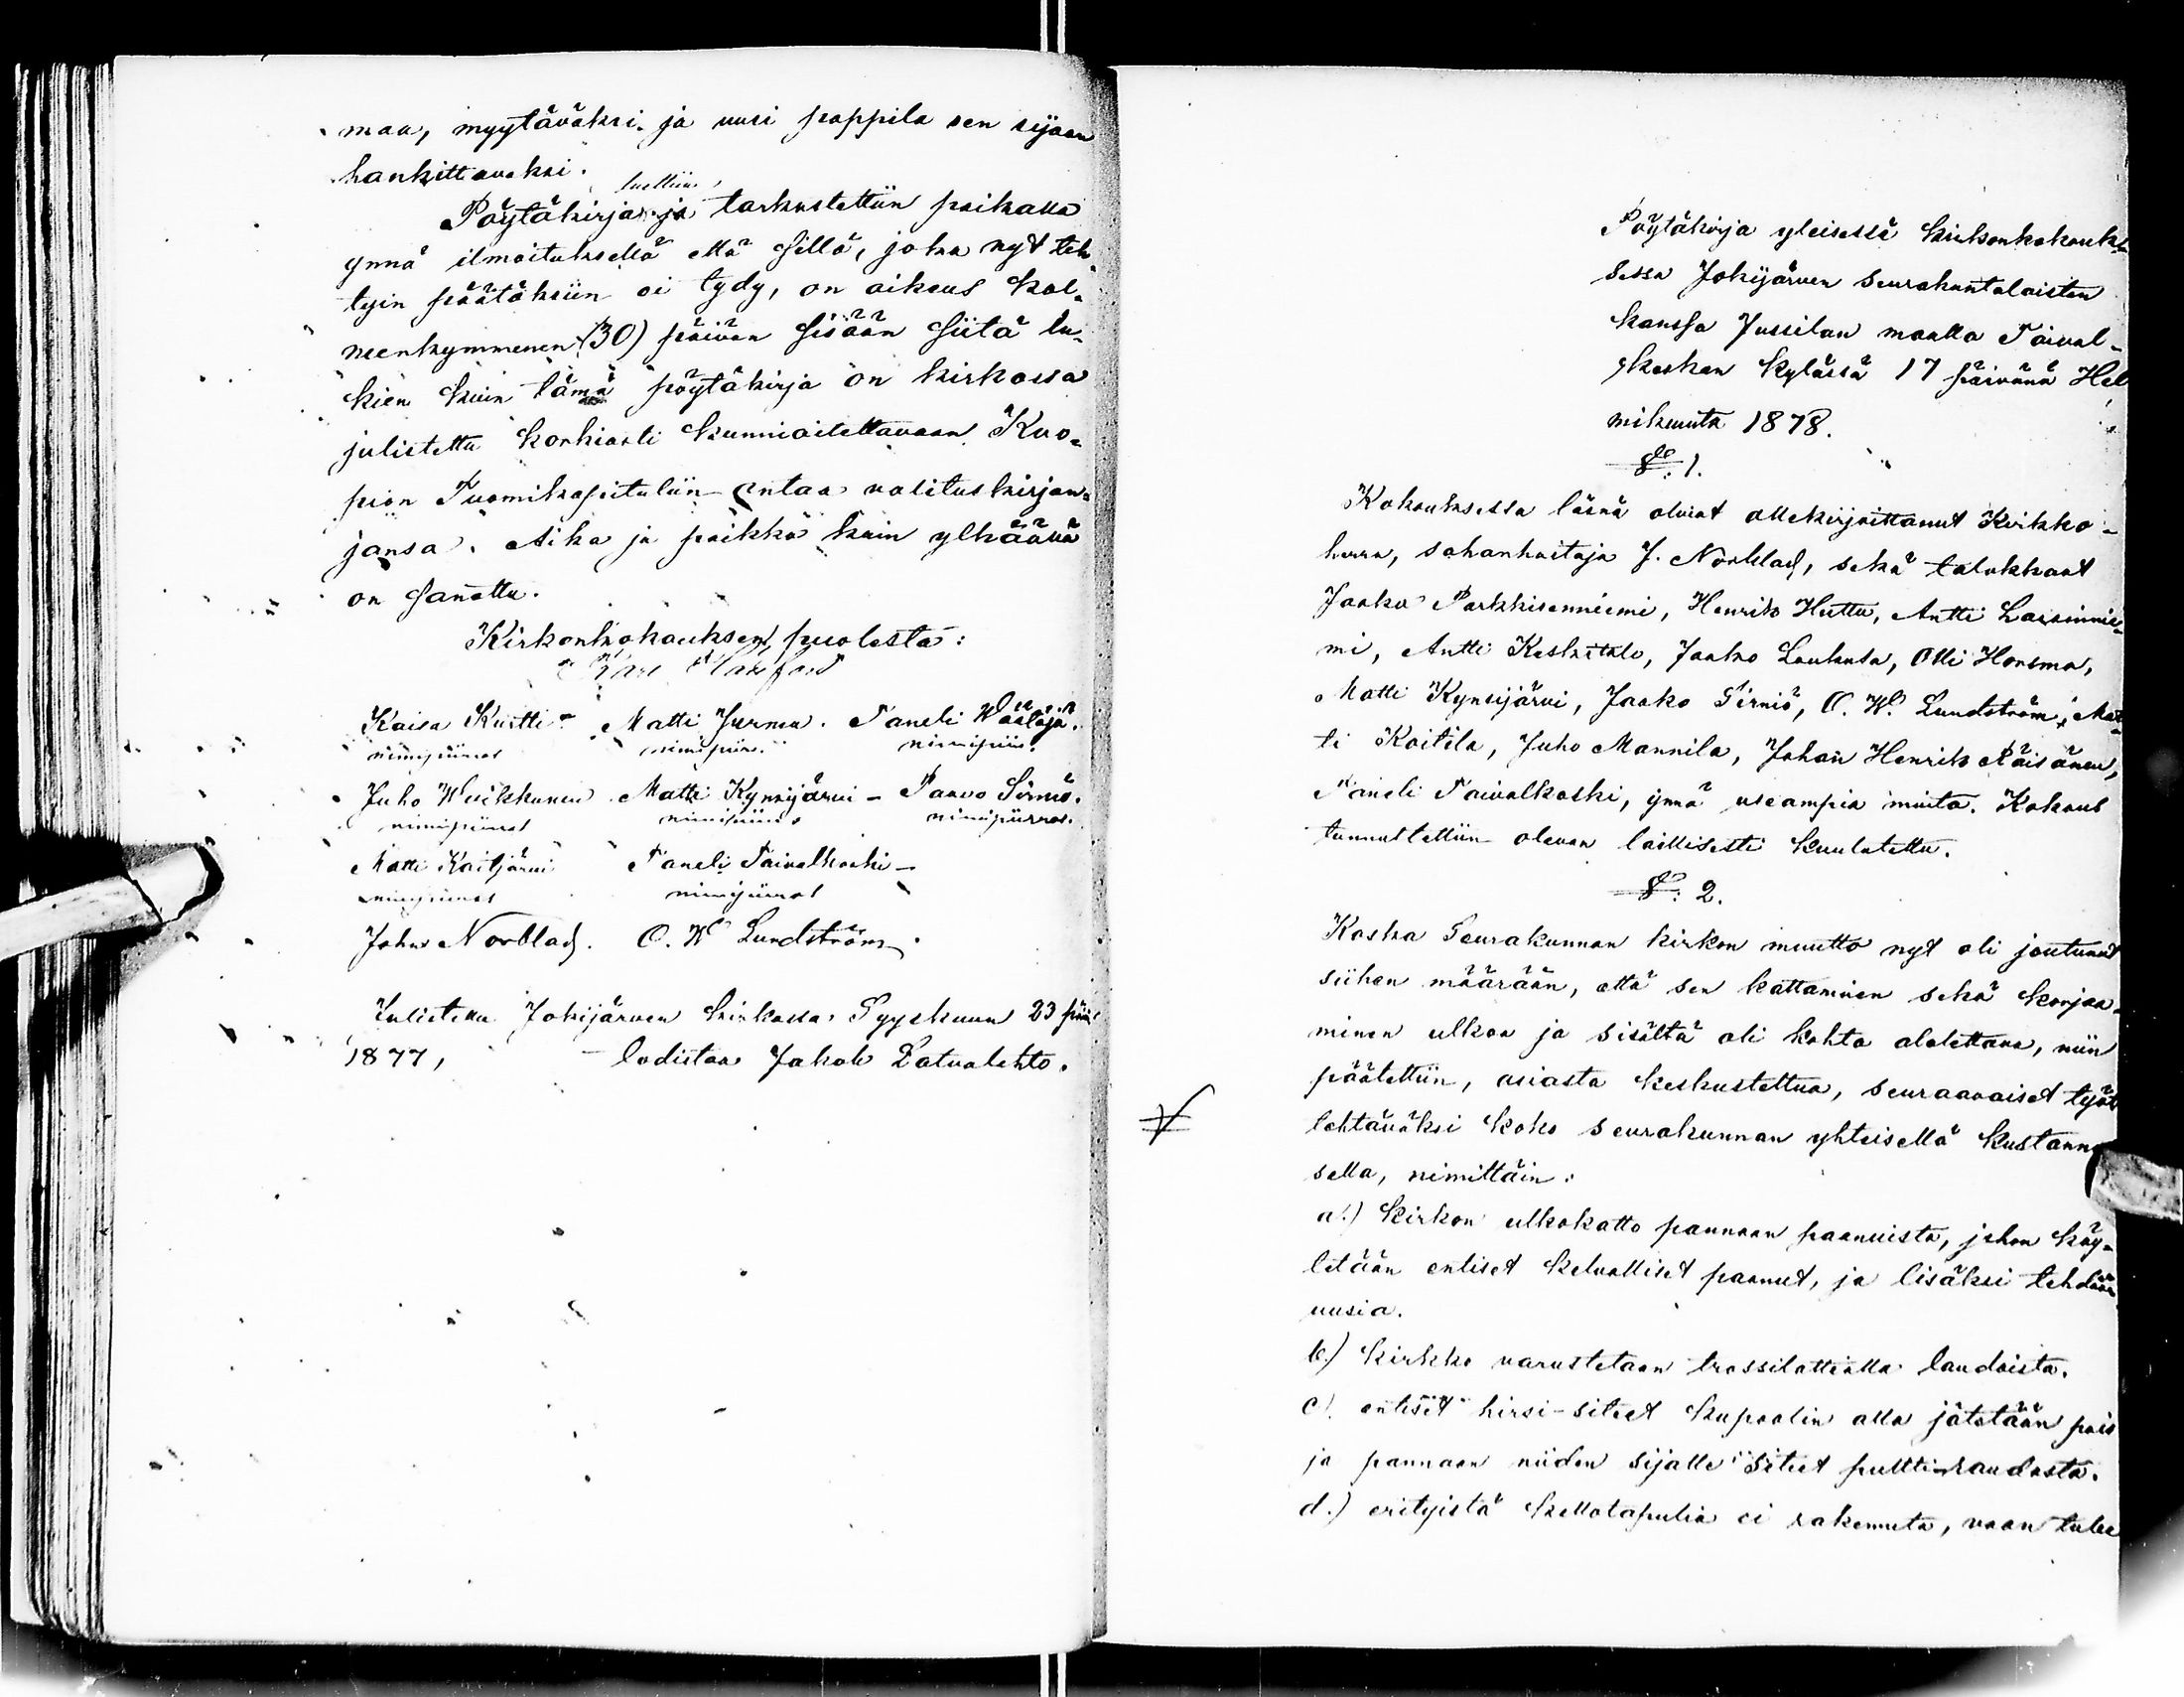 maa, myytäväksi ja uusi pappila sen sijaan
hankittavaksi.
luettiin
Pöytäkirja ja tarkustettiin paikalla
ynnä ilmoituksella että sillä, joka nyt teh-
tyin päätöksiin ei tydy, on oikeus kol-
menkymmenen (30) päivän sisään siitä lu-
kien kuin tämä pöytäkirja on kirkossa
julistettu korkiasti kunnioitettavaan Kuo-
pion Tuomikapituliin antaa valituskirjan-
jansa. Aika ja paikka kuin ylhäänä
on sanottu.
Kirkonkokouksen puolesta:
Kaisa Kurtti - Matti Jurmu. Taneli Määttäjä.
nimipiirros nimipiir. nimipiir.
Juho Weikkunen Matti Kynsijärvi - Paavo Sirniö.
nimipiirrot nimipiirros nimipiirros.
Matti Kaitjärvi Taneli Taivalkoski -
nimipiirrot nimipiirrot
Johns Norblad. O. W. Lundström.
Julistettu Jokijärven kirkossa Syyskuun 23 päiv
1877, todistaa Jakob Latvalehto.
Pöytäkirja yleisessä kirkonkokouk-
sessa Jokijärven seurakuntalaisten
kanssa Jussilan maalla Taival-
kosken kylässä 17 päivänä Hel
mikuuta 1878.
§. 1.
Kokouksessa läsnä olivat allekirjoittanut Kirkko-
herra, sahanhoitaja J. Norblad, sekä talokkaat
Jaako Parkkisenniemi, Henrik Huttu, Antti Lassinnie-
mi, Antti Keskitalo, Jaako Loukusa, Olli Horsma,
Matti Kynsijärvi, Jaako Sirniö, O. W. Lundström, Mat-
ti Koitila, Juho Mannila, Johan Henrik Räisänen,
Taneli Taivalkoski, ynnä useampia muita. Kokous
tunnustettiin olevan laillisesti kuulutettu.
§. 2.
Koska Seurakunnan kirkon muutto nyt oli joutunut
siihen määrään, että sen kattaminen sekä korjaa-
minen ulkoa ja sisältä oli kohta alotettava, niin
päätettiin, asiasta keskusteltua, seuraavaiset työt
tehtäväksi koko seurakunnan yhteisellä kustannu
sella, nimittäin:
a.) kirkon ulkokatto pannaan paanuista, johon käy-
tetään entiset kelvolliset paanut, ja lisäksi tehdään
uusia.
b.) kirkko varustetaan trossilattialla laudoista.
c). entiset hirsi-siteet kupoolin alla jätetään pois
ja pannaan niiden sijalle siteet pultti-raudasta.
d.) erityistä kellotapulia ei rakenneta, vaan tulee